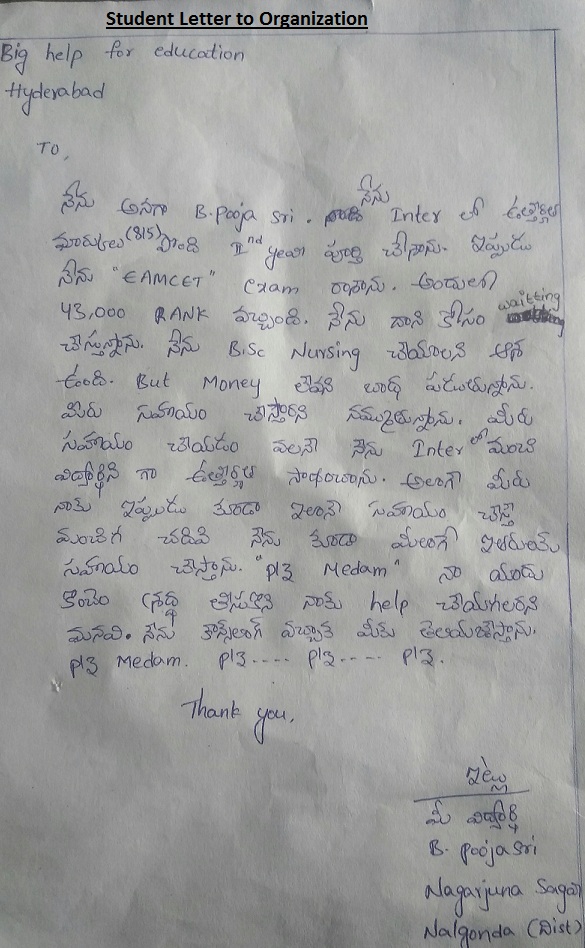 Student Letter to Organization
Big help for education
Hyderabad
To,
నేను
నేను అనగా B. Pooja sri. Inter లో ఉత్తీర్ణత
మార్కులు (815) పొంది IInd year పూర్తి చేసాను. ఇప్పుడు
నేను "EAMCET" Exam రాశాను. అందులో
43,000 RANK వచ్చింది. నేను దాని కోసం waitting
చేస్తున్నాను. నేను B.Sc Nursing చేయాలని ఆశ
ఉంది. But Money లేవని బాధ పడుతున్నాను.
మీరు సహాయం చేస్తారని నమ్ముతున్నాను. మీరు
సహాయం చేయడం వలనే నేను Inter లో మంచి
విద్యార్థిని గా ఉత్తీర్ణత సాధించాను. అలాగే మీరు
నాకు ఇప్పుడు కూడా ఇలానే సహాయం చేస్తే
మంచిగ చదివి నేను కూడా మీలాగే ఇతరులకు
సహాయం చేస్తాను. "plz Medam" నా యందు
కొంచెం శ్రద్ధ తీసుకొని నాకు help చేయగలరని
మనవి. నేను కౌన్సిలింగ్ వచ్చాక మీకు తెలియజేస్తాను.
plz Medam. plz.... plz.... plz.
Thank you,
ఇట్లు
మీ విద్యార్థి
B. poojasri
Nagarjuna Sagar
Nalgonda (Dist)